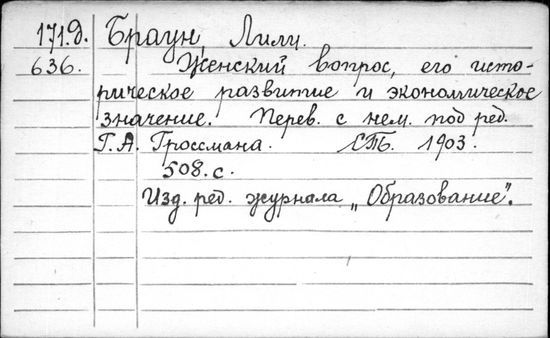 171.д. Браун, Лили.
636. Женский вопрос, его исто-
рическое развитие и экономическое
значение. Перев. с нем. под ред.
Г. А. Гроссмана. СПБ. 1903.
508. с.
Изд. ред. журнала „Образование".